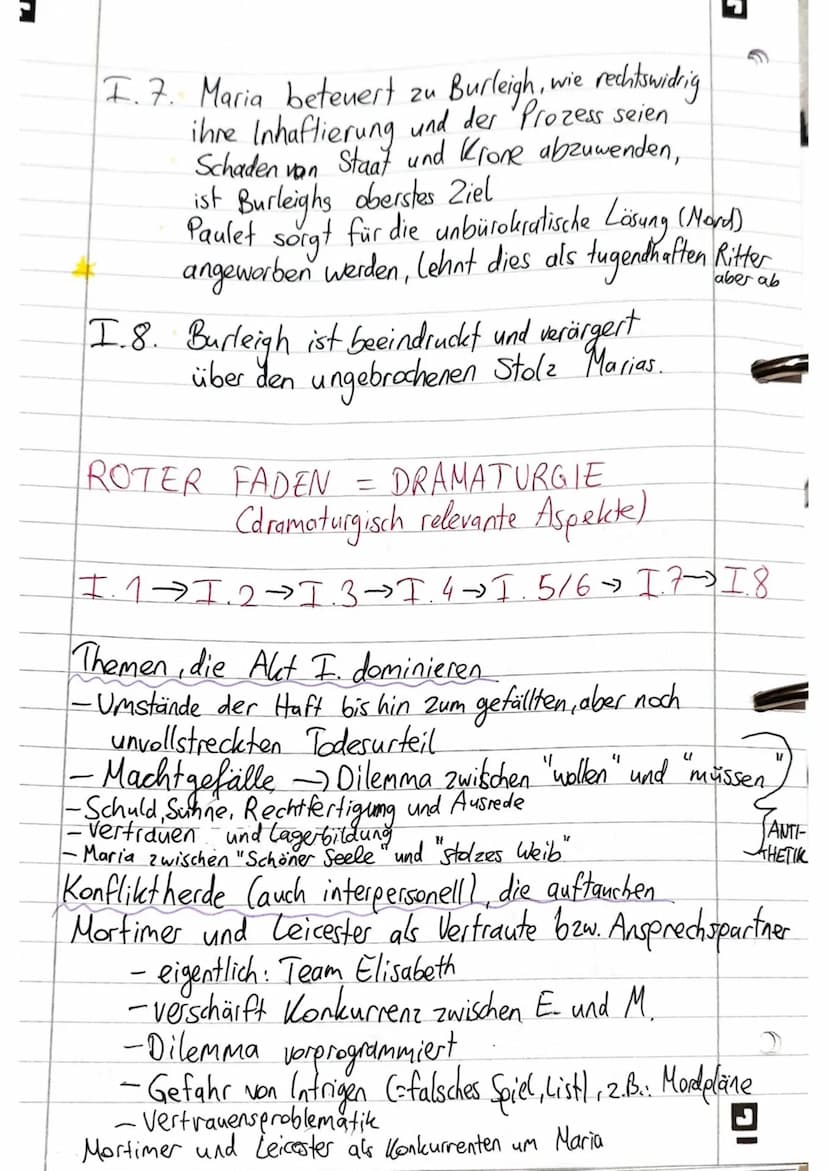 I.7. Maria beteuert zu Burleigh, wie rechtswidrig
ihre Inhaftierung und der Prozess seien
Schaden von Staat und Krone abzuwenden,
ist Burleighs oberstes Ziel
Paulet sorgt für die unbürokratische Lösung (Mord)
angeworben werden, lehnt dies als tugendhaften Ritter
aber ab
I.8. Burleigh ist beeindruckt und verärgert
über den ungebrochenen Stolz Marias.
ROTER FADEN = DRAMATURGIE
(dramaturgisch relevante Aspekte)
I.1 → I.2 → I.3 → I.4 → I.5/6 → I.7 → I.8
Themen, die Akt I. dominieren
- Umstände der Haft bis hin zum gefällten, aber noch
unvollstreckten Todesurteil
- Machtgefälle → Dilemma zwischen "wollen" und "müssen"
- Schuld, Sühne, Rechtfertigung und Ausrede
- Vertrauen und Lagerbildung
- Maria zwischen "Schöner Seele" und "stolzes Weib"
ANTI-
THETIK
Konfliktherde (auch interpersonell), die auftauchen
Mortimer und Leicester als Vertraute bzw. Ansprechspartner
- eigentlich: Team Elisabeth
- verschärft Konkurrenz zwischen E. und M.
- Dilemma vorprogrammiert
- Gefahr von Intrigen (=falsches Spiel, List), z.B.: Mordpläne
- Vertrauensproblematik
Mortimer und Leicester als Konkurrenten um Maria